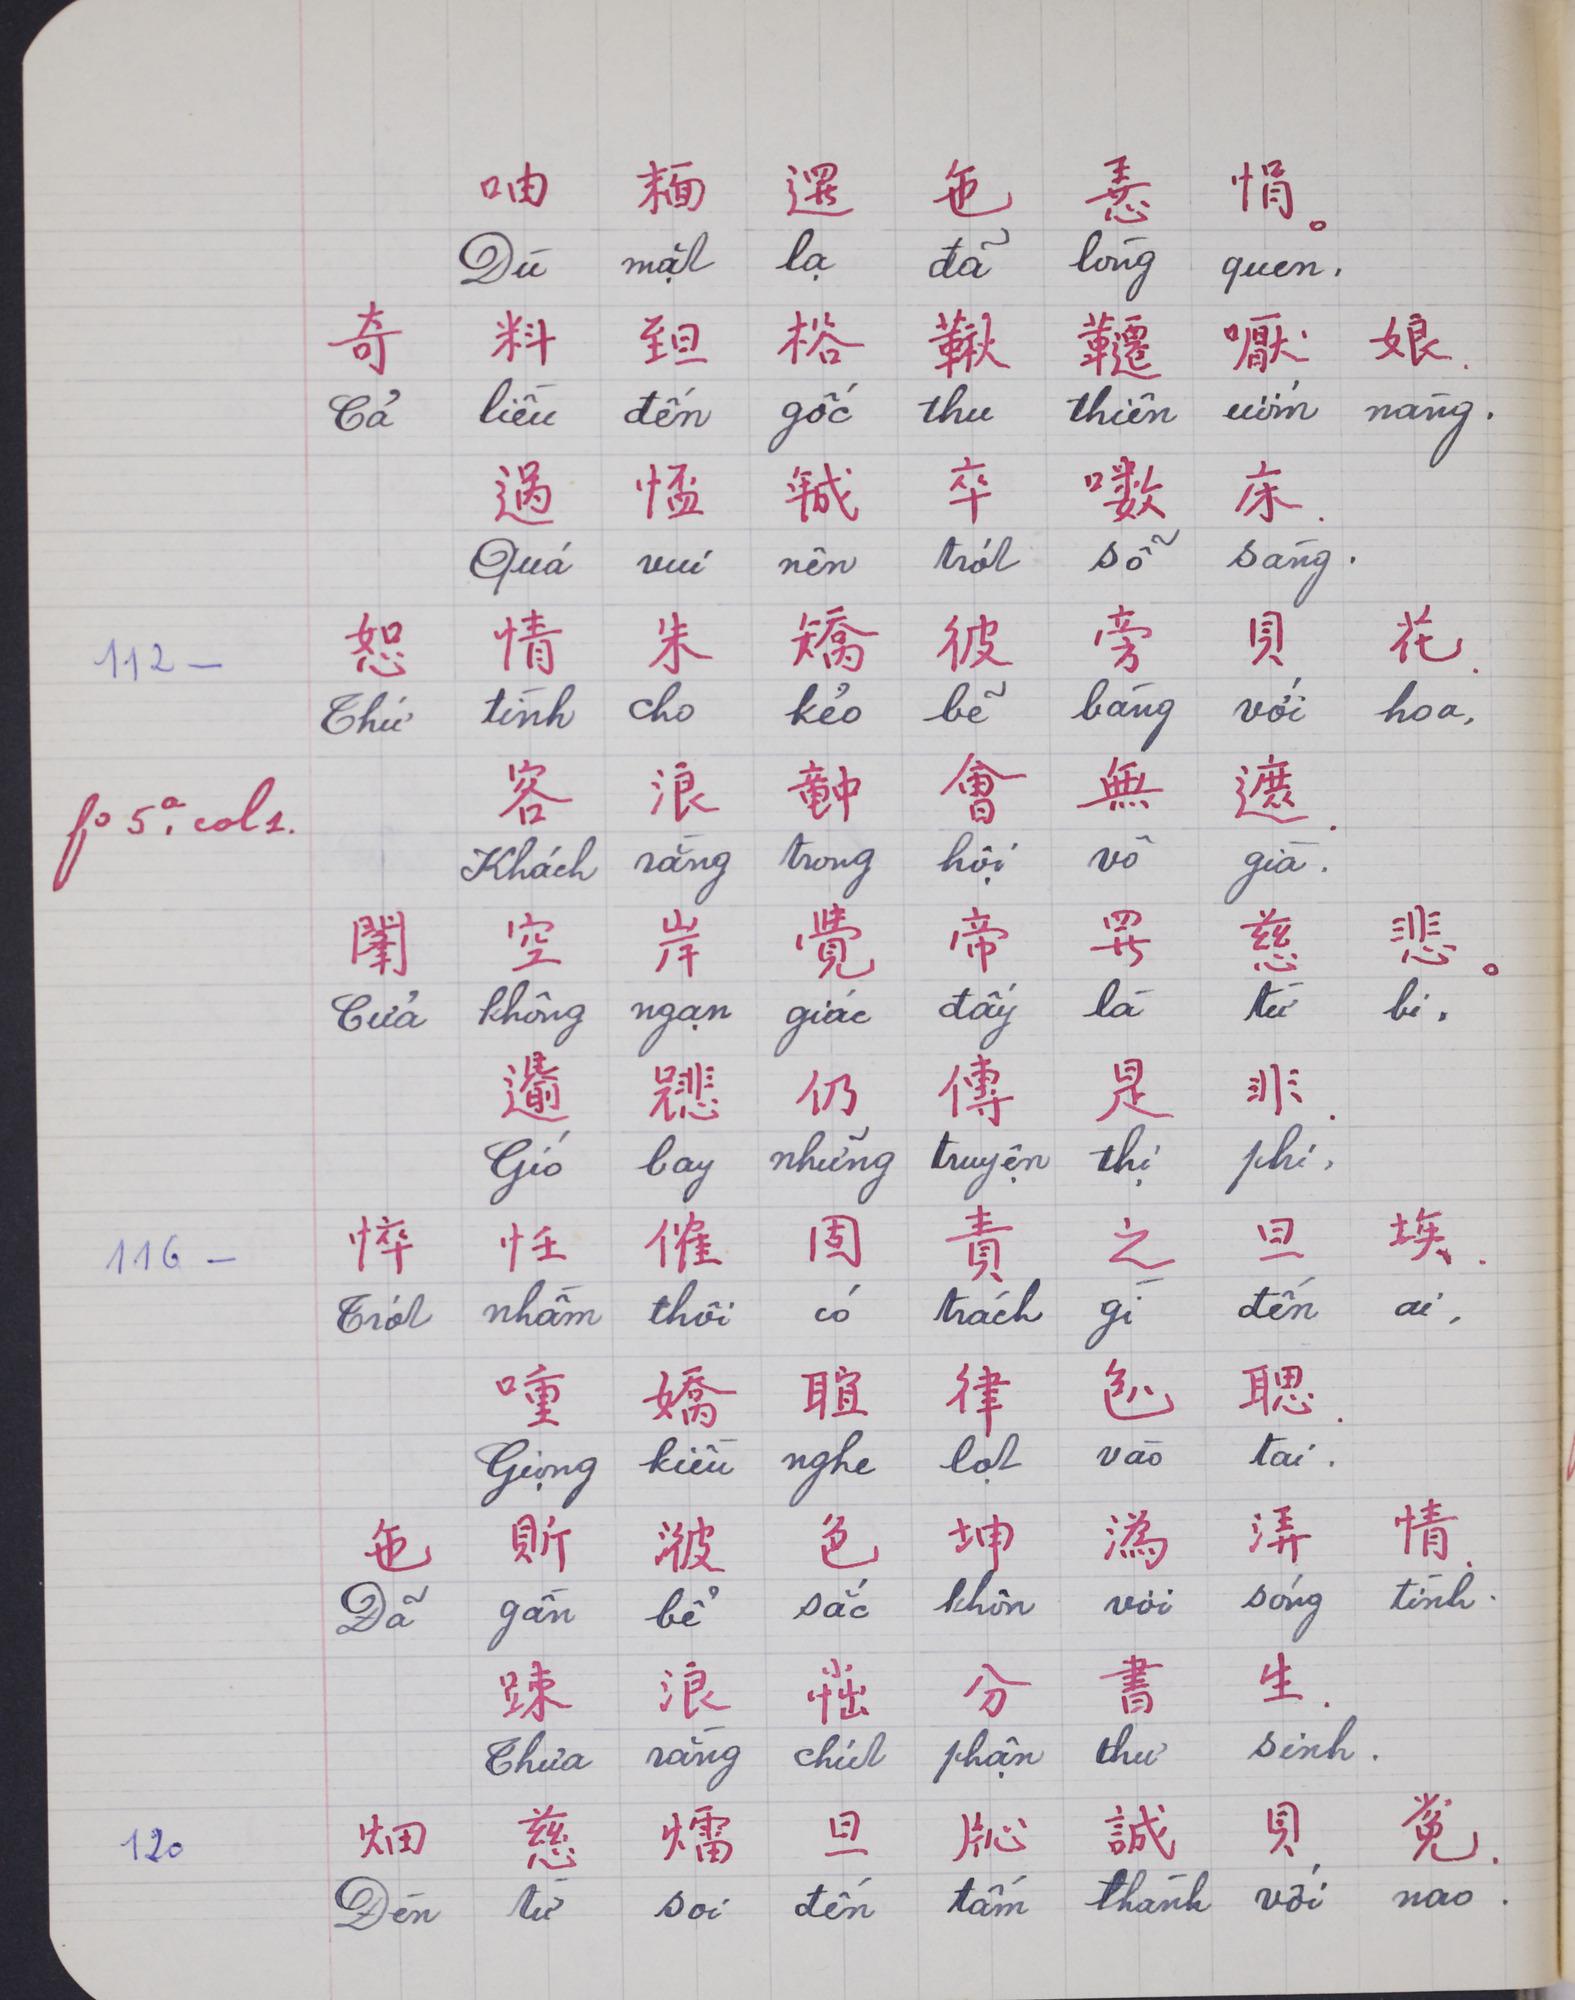 呥 𩈘 邏 㐌 悉 悁。
Dù mặt lạ đã lòng quen.
奇 料 𦤾 㭲 鞦 韆 嚈 娘.
Cả liều đến gốc thu thiên ướm nàng.
過 㤕 𢧚 卒 𠼦 床.
Quá vui nên trót sỗ sàng.
112 —
恕 情 朱 矯 彼 傍 貝 花.
Thứ tình cho kẻo bẽ bàng với hoa,
fo 5a, col 1.
客 浪 𥪝 會 無 遮.
Khách rằng trong hội vô già.
𨷯 空 岸 覺 帝 𱺵 慈 悲。
Cửa không ngạn giác đấy là từ bi.
𨔍 𢒎 仍 傳 是 非.
Gió bay những truyện thị phi,
116 —
悴 恁 催 固 責 之 旦 埃.
Trót nhầm thôi có trách gì đến ai,
喠 嬌 𦖑 律 𠓨 聰.
Giọng kiều nghe lọt vào tai.
㐌 𧵆 𣷭 色 坤 潙 㳥 情.
Đã gần bể sắc khôn vơi sóng tình.
疎 浪 𢤞 分 書 生.
Thưa rằng chút phận thư sinh.
120
畑 慈 㷟 旦 𬌓 誠 貝 𱜢.
Đèn từ soi đến tấm thành với nao.